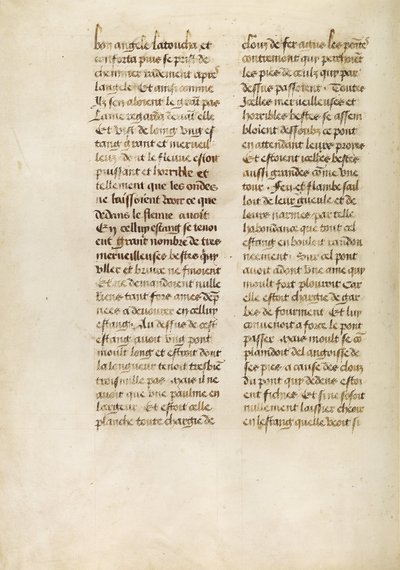 bon angele latoucha et
conforta puis se prist de
cheminer radement apres
langele Et ainsi comme
Ilz sen aloient le grant pas
Lame regarda deuant elle
Et visi de loing vng es
tang grant et merueil
leux dont le fleuue estoit
puissant et horrible et
tellement que les ondes
ne laissoient veoir ce que
dedans le fleuue auoit
En celluy estang se tenoi
ent grant nombre de tres
merueilleuses bestes quy
vller et bruire ne finoient
Et ne demandoient nulle
riens tant fors ames dep
nees a deuourer en celluy
estang Au dessus de cest
estang auoit vng pont
moult long et estroit dont
la longueur tenoit tresbien
trois mille pas Mais il ne
auoit que vne paulme en
largeur Et estoit celle
planche toute chargie de
clouz de fer agus les pointes
contremont quy perchoient
les pies de ceulz quy par
dessus passoient Toutes
Icelles merueilleuses et
horribles bestes se assem
bloient dessoubz ce pont
en attendant leurs proyes
Et estoient icelles bestes
aussi grandes comme vne
tour Feu et flambe sail
loit de leur gueule et de
leurs narines par telle
habondance que tout cel
estang en bouloit radon
neement Sur cel pont
auoit adont vne ame quy
moult fort plouroit Car
elle estoit chargie de gar
bes de fourment Et luy
conuenoit a force le pont
passer Mais moult se co
plaindoit del angoisse de
ses pies a cause des clouz
du pont quy dedens estoi
ent fichies Et si ne osoit
nullement laissier cheoir
en lestang quelle veoit si